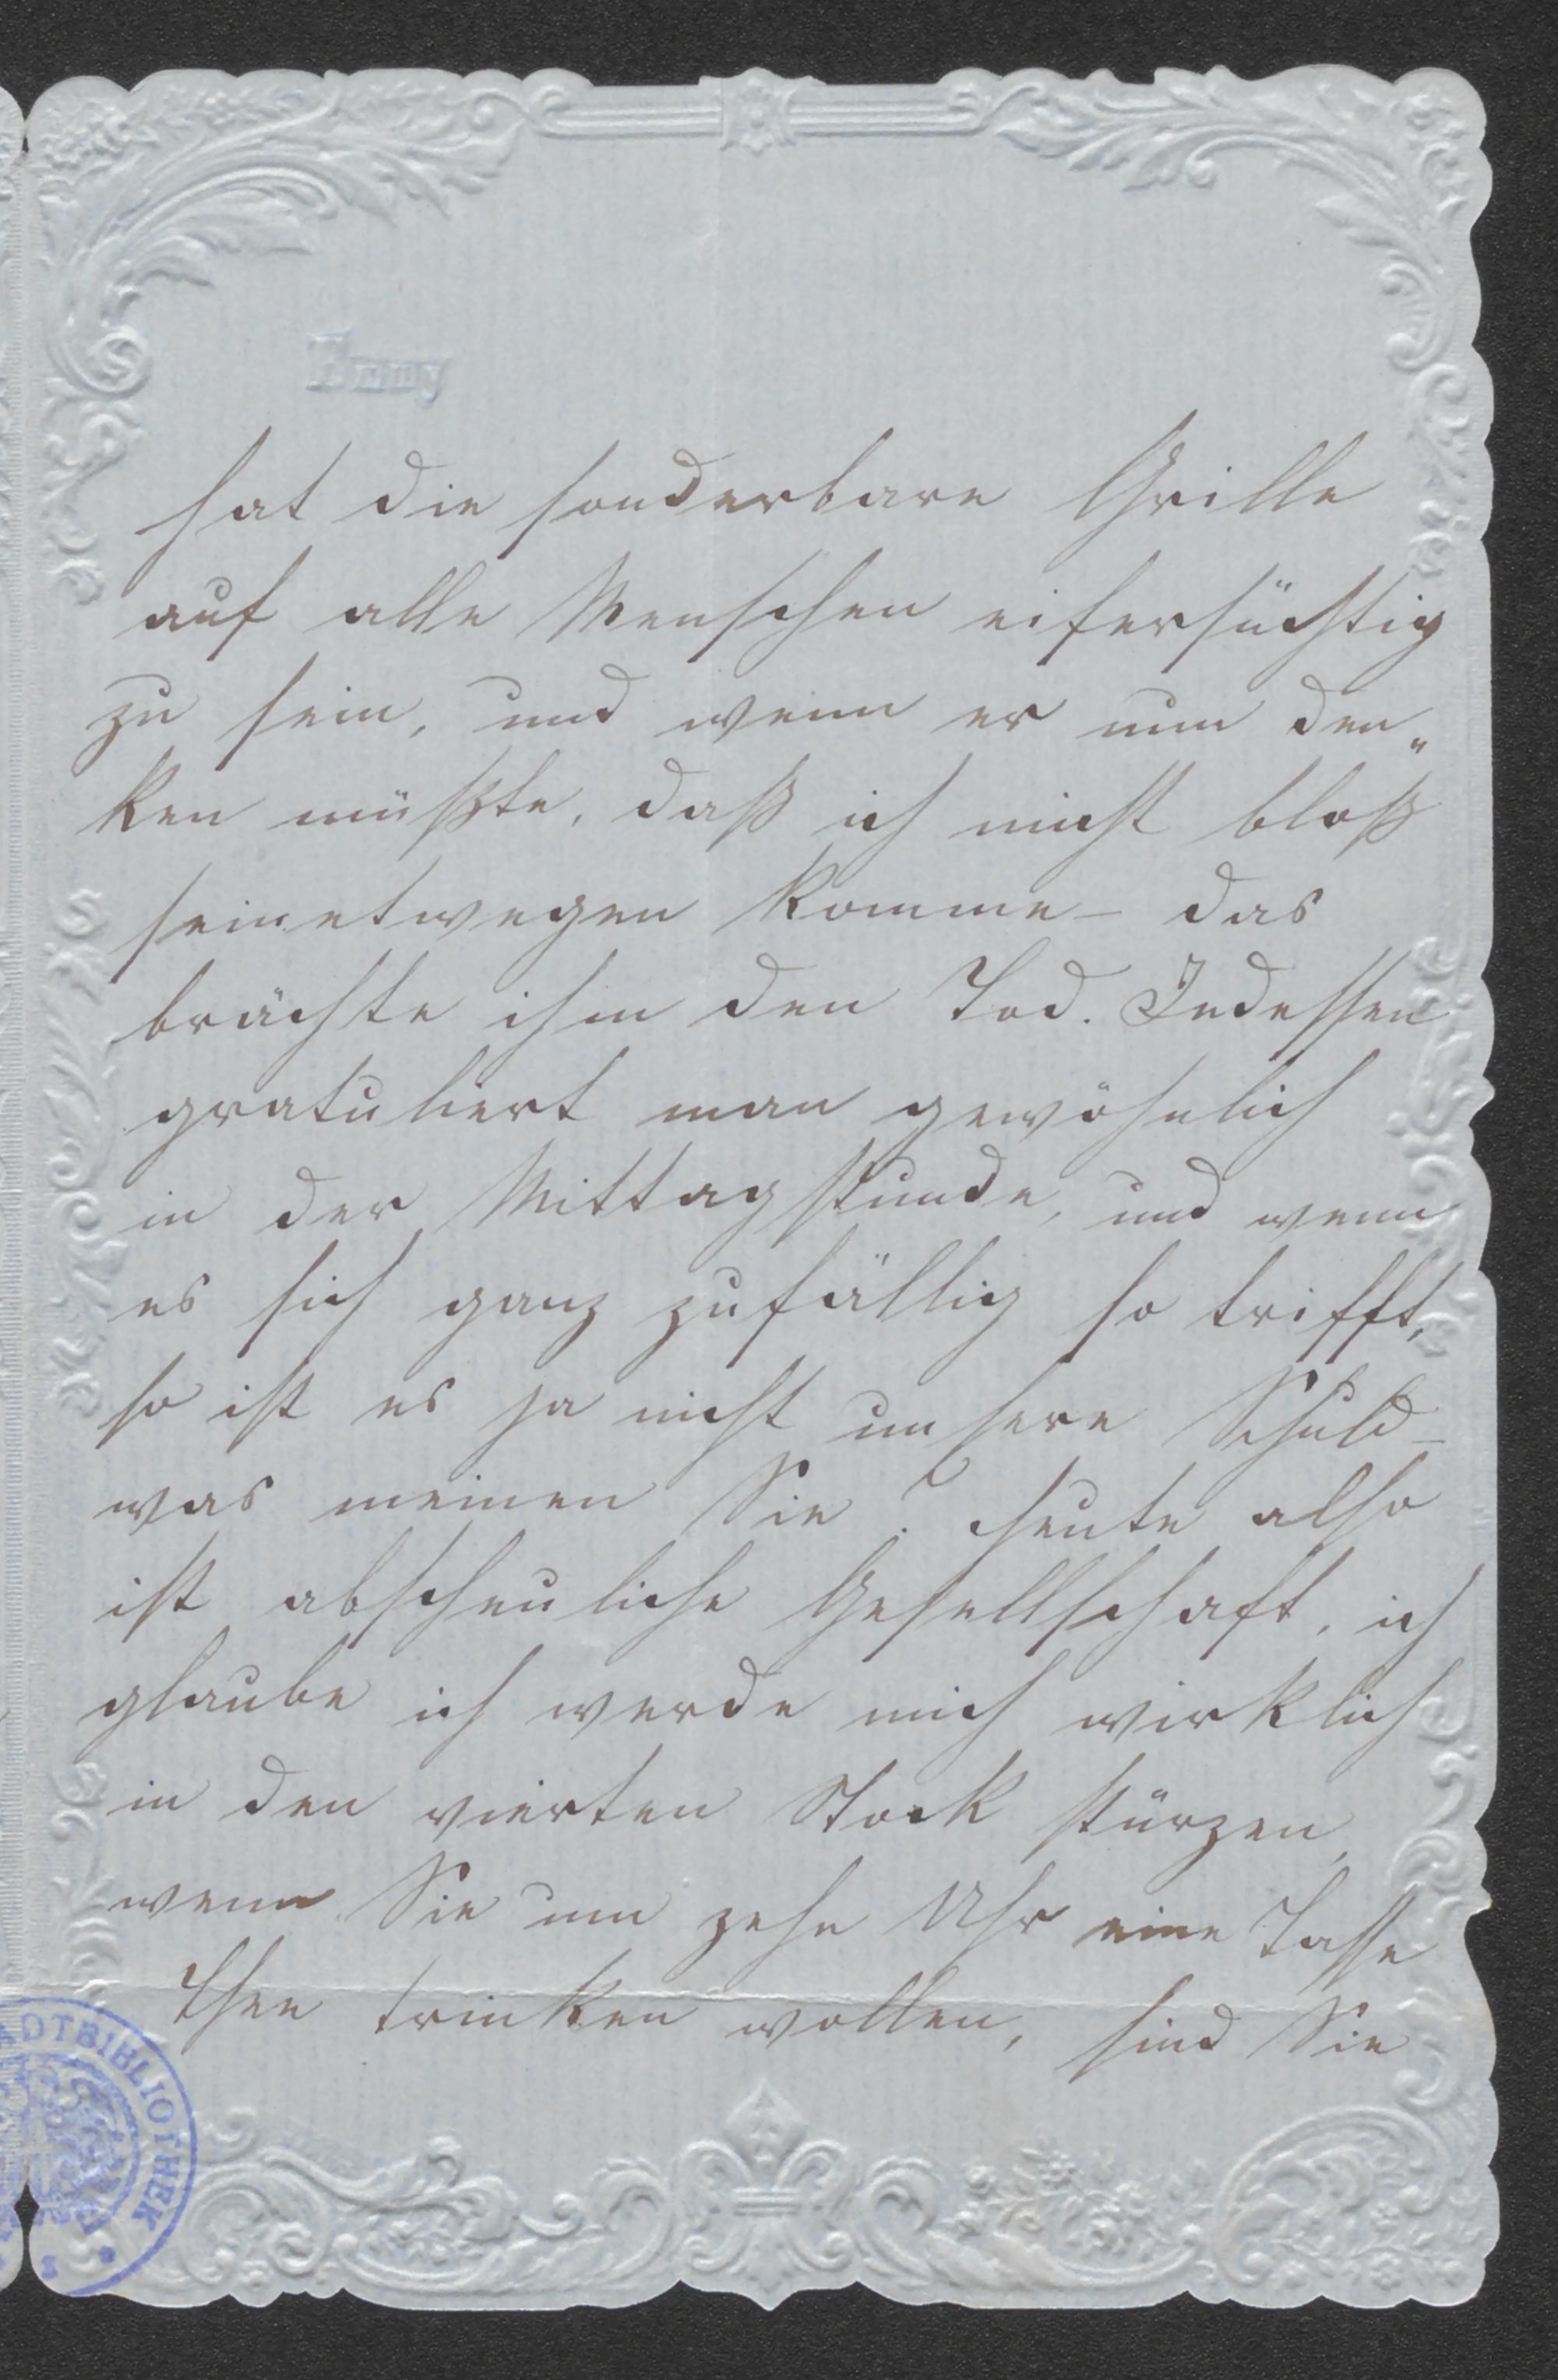 hat die sonderbare Grille
auf alle Menschen eifersüchtig
zu sein, und wenn er nun den„
ken müßte, daß ich nicht bloß
seinetwegen komme – das
brächte ihm den Tod. Indessen
gratuliert man gewöhnlich
in der Mittagstunde, und wenn
es sich ganz zufällig so trifft,
so ist es ja nicht unsere Schuld –
was meinen Sie? Heute also
ist abscheuliche Gesellschaft, ich
glaube ich werde mich wirklich
in den vierten Stock stürzen,
wenn Sie um zehn Uhr eine Tasse
Thee trinken wollen, sind Sie
ADTBIBLIOTHEK